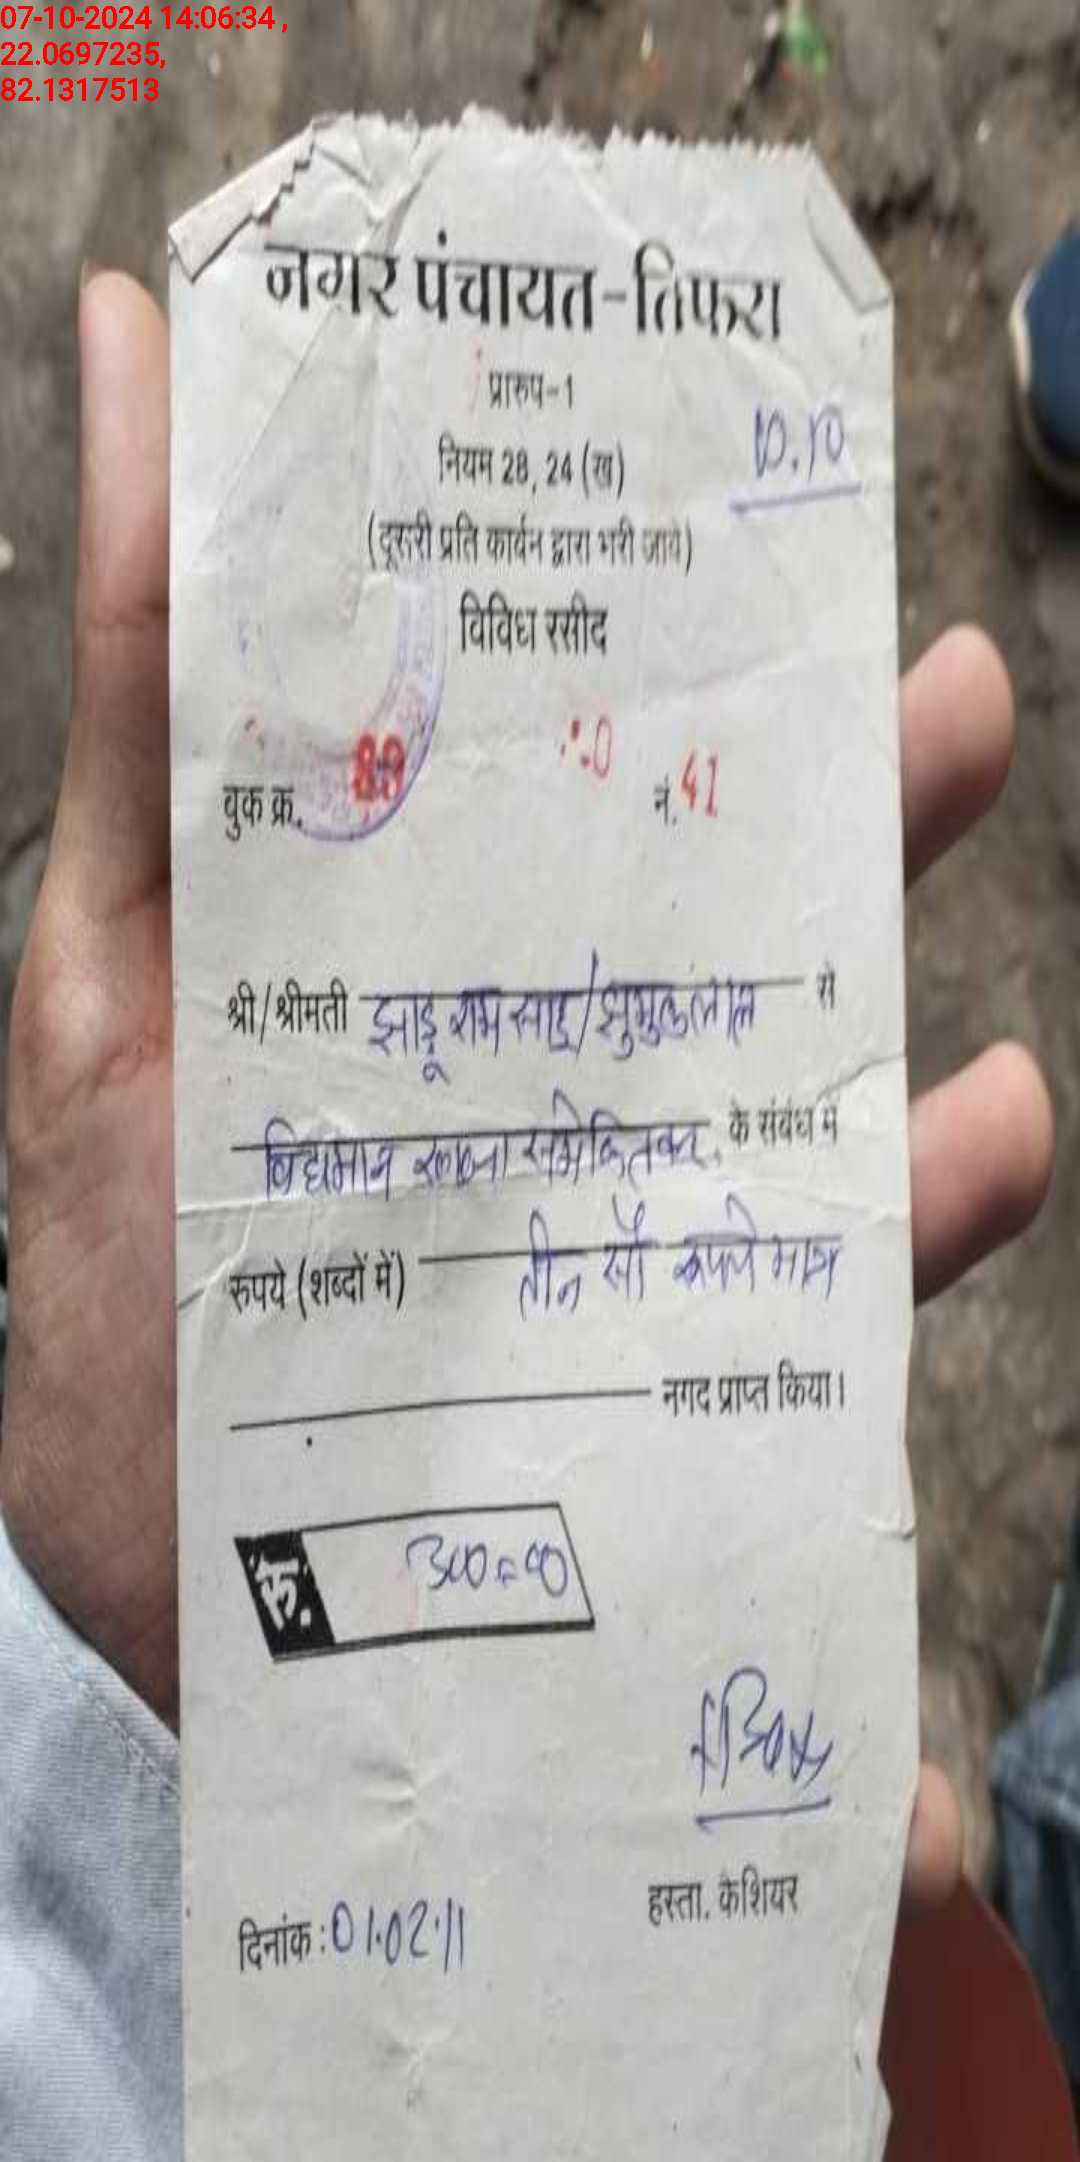 07-10-2024 14:06:34 ,
22.0697235,
82.1317513
नगर पंचायत-तिफरा
प्रारुप-1
नियम 28, 24 (ख)
(दूसरी प्रति कार्वन द्वारा भरी जाये)
विविध रसीद
वुक क्र.
नं. 41
श्री/श्रीमती झाडू राम साहू/झुमुकलाल से
विद्यमान समेकितकर के संबंध में
रुपये (शब्दों में) तीन सौ रूपये मात्र
नगद प्राप्त किया।
रु. 300=00
हस्ता. केशियर
दिनांक : 01.02.11